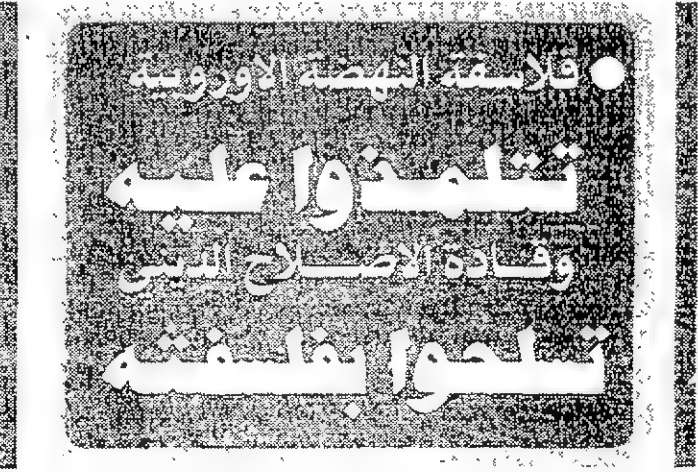 ● فلاسفة النهضة الاوروبية
تتلمذوا عليه
وقادة الاصلاح الدينى
تسلحوا بفلسفته